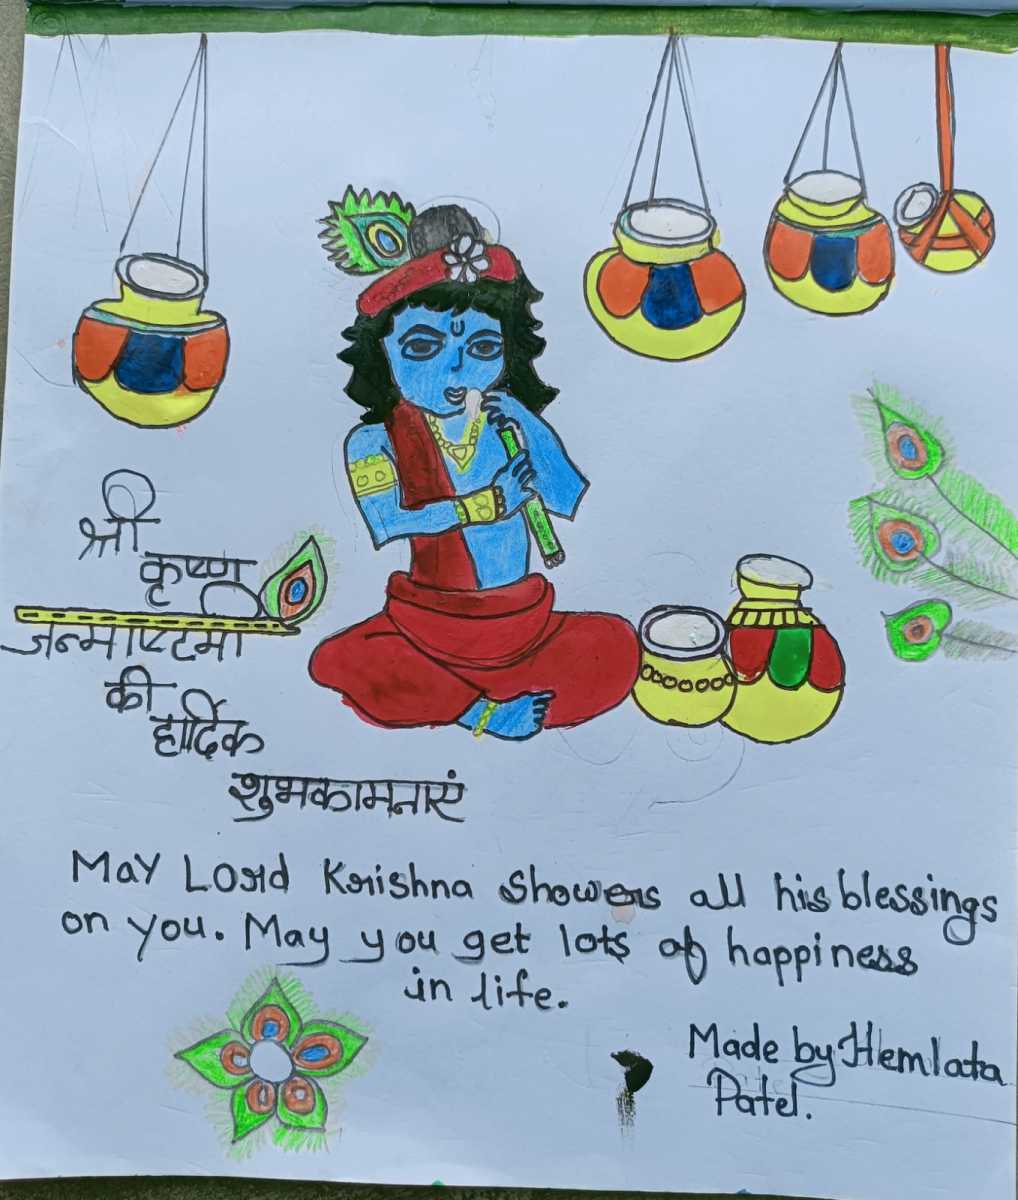 श्री
कृष्ण
जन्माष्टमी
की
हार्दिक
शुभकामनाएं
May Lord Krishna Showers all his blessings
on you. May you get lots of happiness
in life.
Made by Hemlata
Patel.